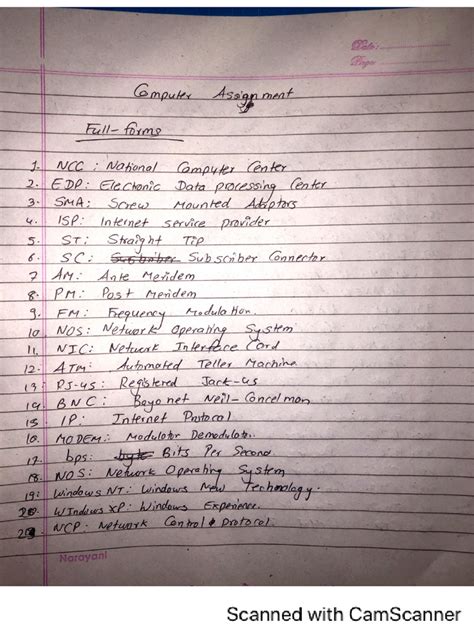 Date:
Page:
Computer Assignment
Full-forms
1. NCC : National Computer Center
2. EDP: Electonic Data processing Center
3. SMA: Screw Mounted Adaptors
4. ISP: Internet service provider
5. ST: Straight Tip
6. SC: Subscriber Subscriber Connector
7 AM: Ante Meridem
8. PM: Post Meridem
9. FM: Frequency Modulation.
10. NOS: Network Operating System
11. NIC: Network Interface Card
12. ATM: Automated Teller Machine
13: RJ-45: Registered Jack-45
14. BNC: Bayonet Neil-Concelman
15. IP: Internet Protocol
16. MODEM: Modulator Demodulator.
17. bps: byte Bits Per Second
18. NOS: Network Operating System
19: Windows NT: Windows New Technology.
20. Windows XP: Windows Experience.
NCP: Network Control Protocol.
Narayani
Scanned with CamScanner